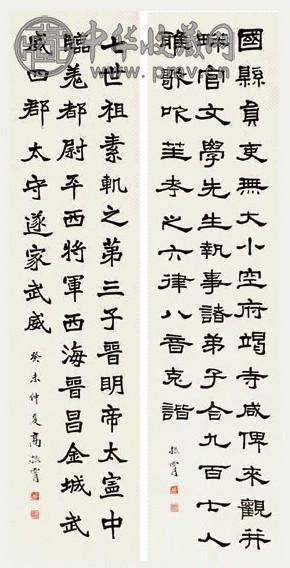 中华收藏网
國縣員吏無大小空府竭寺咸俾來觀并
畔官文學先生執事諸弟子合九百七人
雅歌吹笙考之六律八音克諧
振霄
七世祖素軌之第三子晉明帝太寧中
臨羌都尉平西將軍西海晉昌金城武
威四郡太守遂家武威
癸未仲夏高振霄